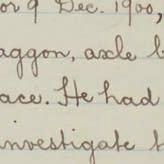 for 9 Dec. 1900,
waggon, axle
ace. He had
investigate